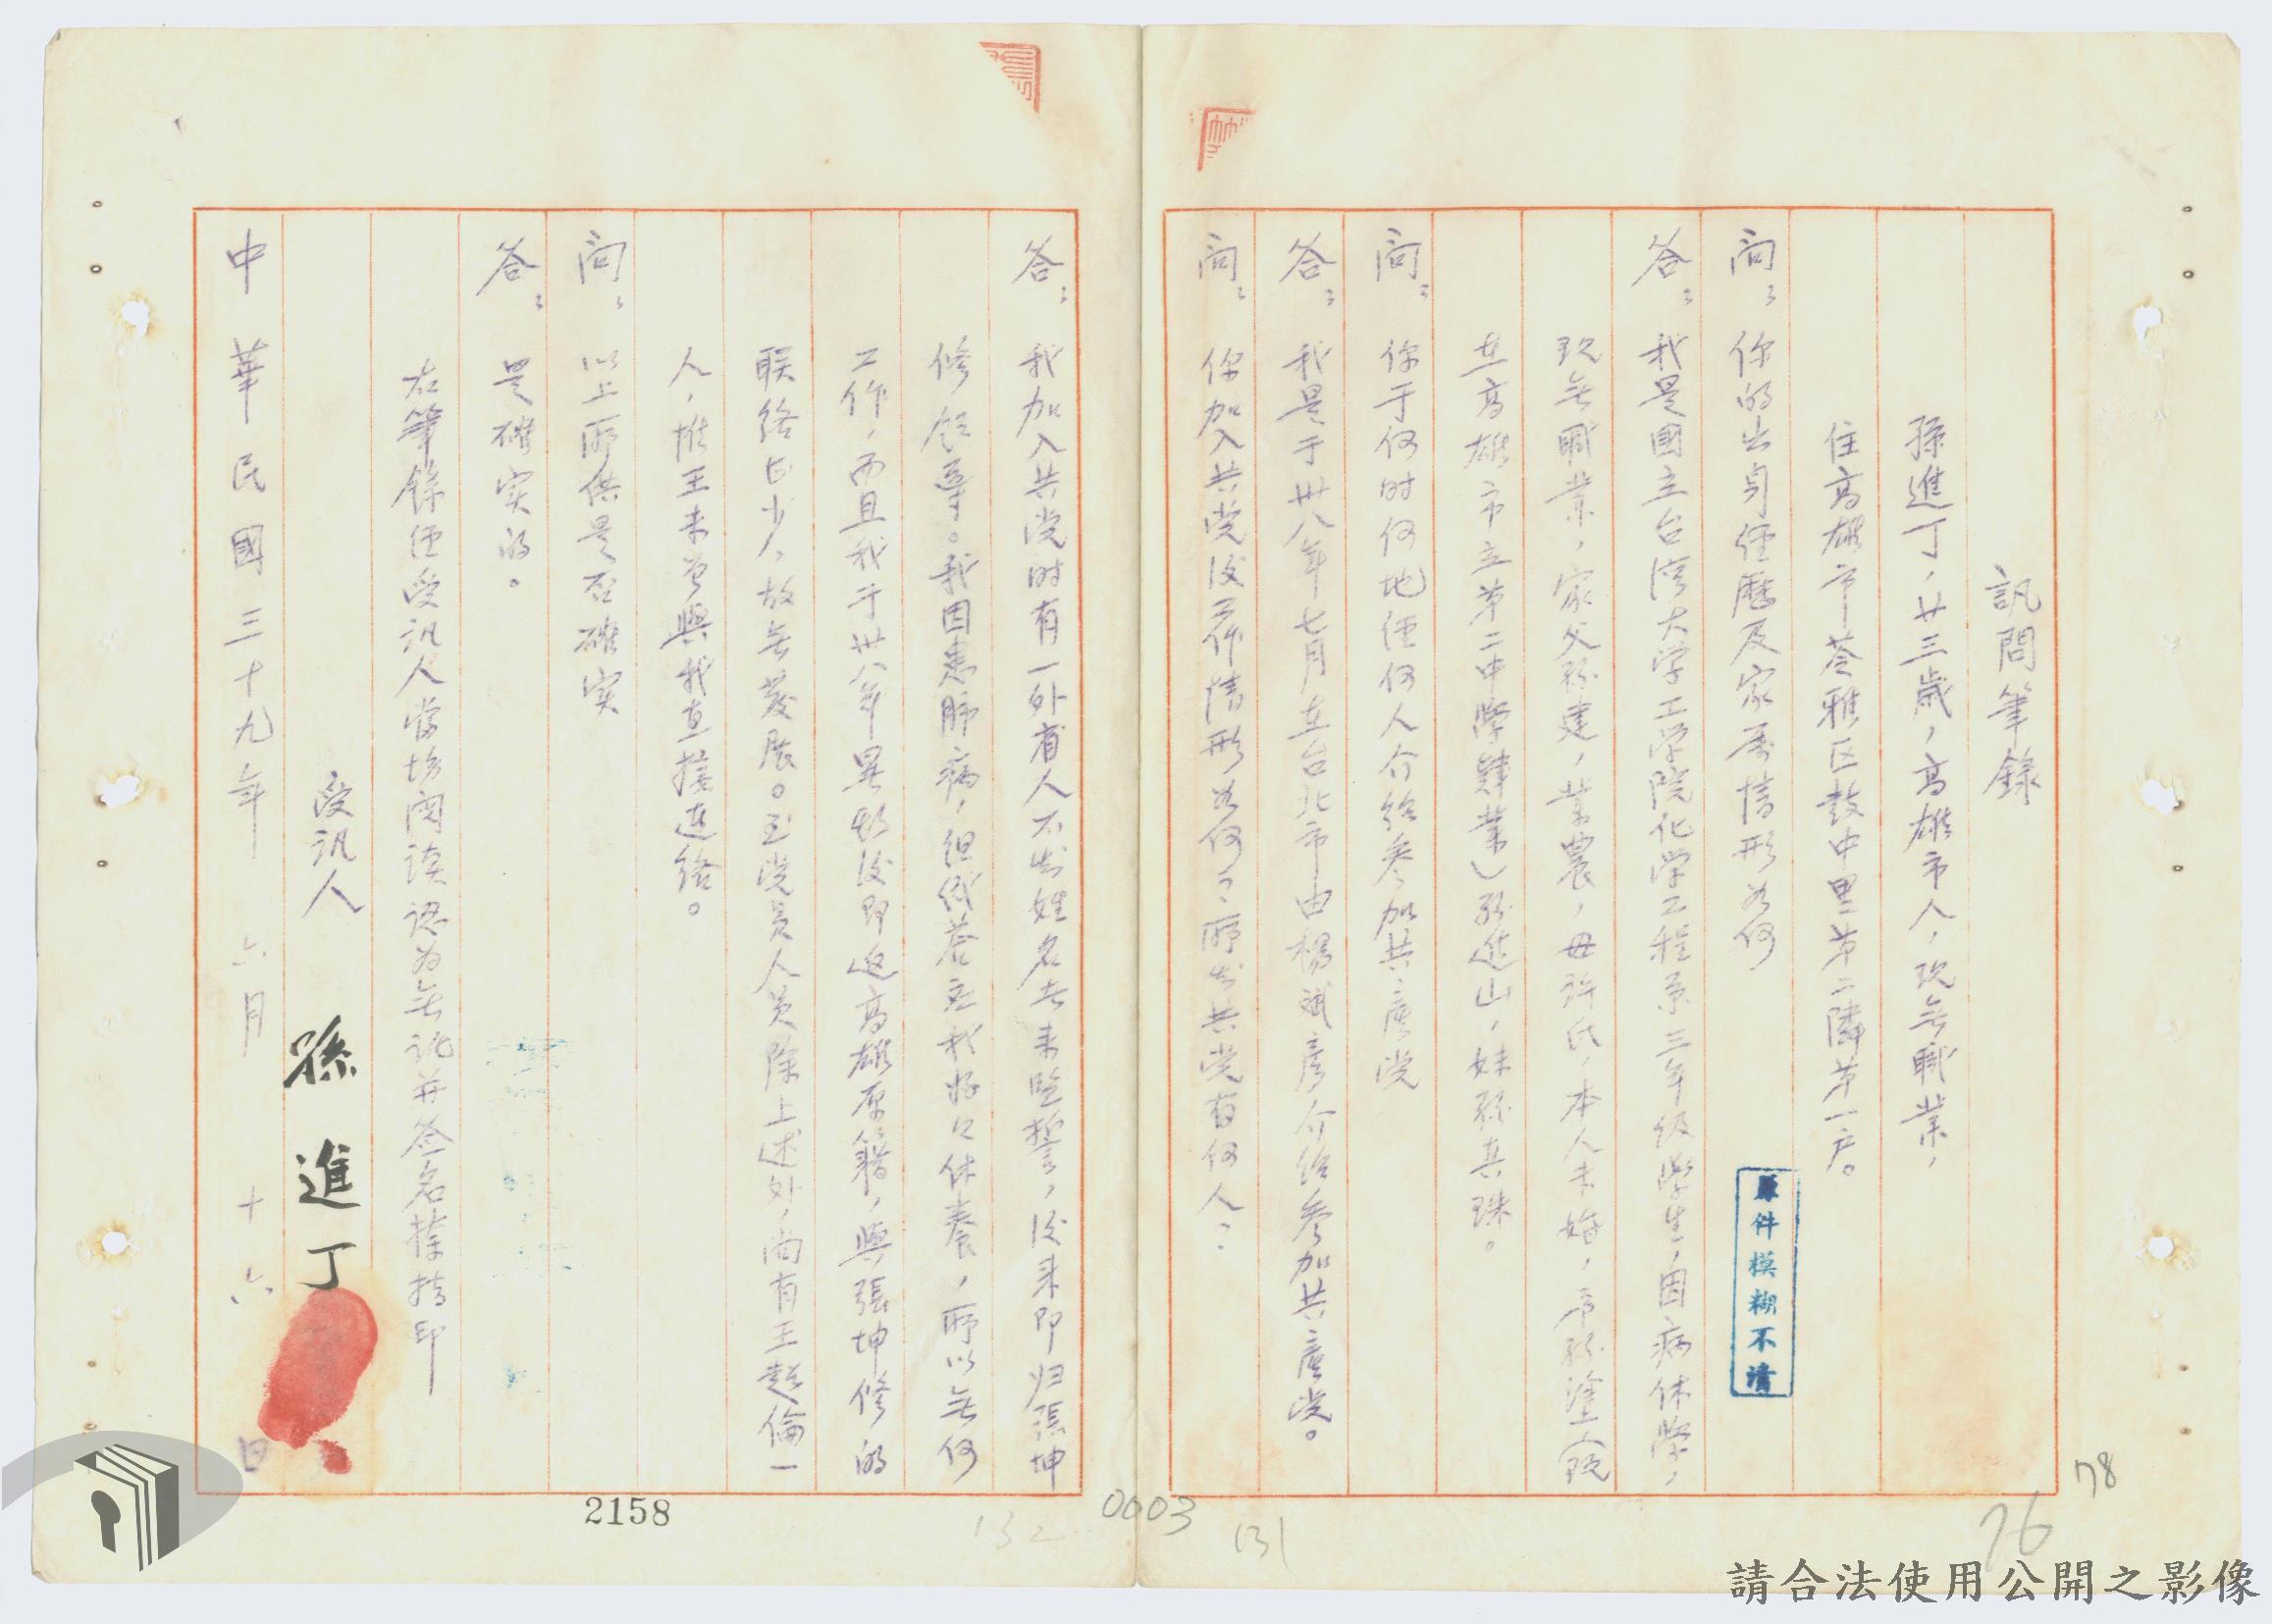 訊問筆錄
孫進丁，廿三歲，高雄市人，現無職業，
住高雄市苓雅区鼓中里第二隣第一户。
问：你的出身経歷及家屬情形为何
答：我是國立台湾大学工学院化学工程系三年級學生，因病休學，
現無職業，家父孫建，業農，母許氏，本人未婚，弟孫塗（現
在高雄市立第二中學肄業）孫進山，妹孫真珠。
问：你于何时何地経何人介紹参加共產党
答：我是于卅八年七月在台北市由楊斌彥介绍参加共產党。
问：你加入共党後工作情形为何？所知共党有何人？
答：我加入共党时有一外省人不知姓名者来監誓，後来即归張坤
修領導。我因患肺病，组织答应我好好休養，所以無何
工作，而且我于卅八年暑假後即返高雄原籍，與張坤修的
联络已少，故無發展。至党員人員除上述外，尚有王超倫一
人，惟王未曾與我直接連络。
问：以上所供是否確实
答：是確实的。
右筆錄経受讯人當场阅读認为無讹并签名捺指印
受讯人 孫進丁
中華民國三十九年六月十六日
原件模糊不清
2158
0003
132
131
76
78
請合法使用公開之影像